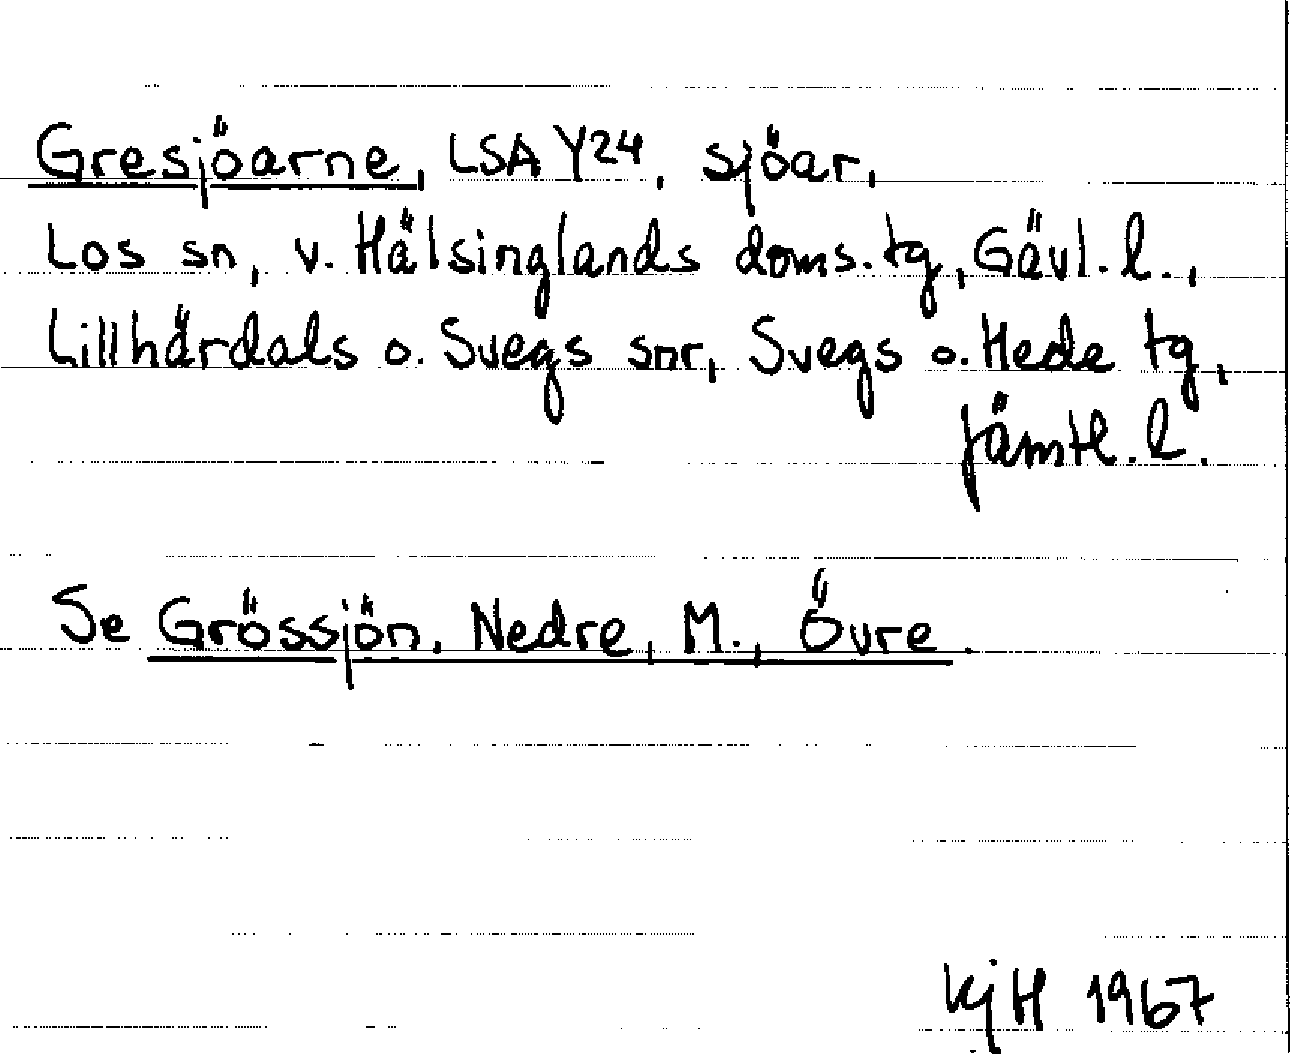 Gresjöarne, LSA Y24, sjöar,
Los sn, v. Hälsinglands doms.tg, Gävl. l.,
Lillhärdals o. Svegs snr, Svegs o. Hede tg,
Jämtl. l.
Se Grössjön, Nedre, M., Övre.
KjH 1967